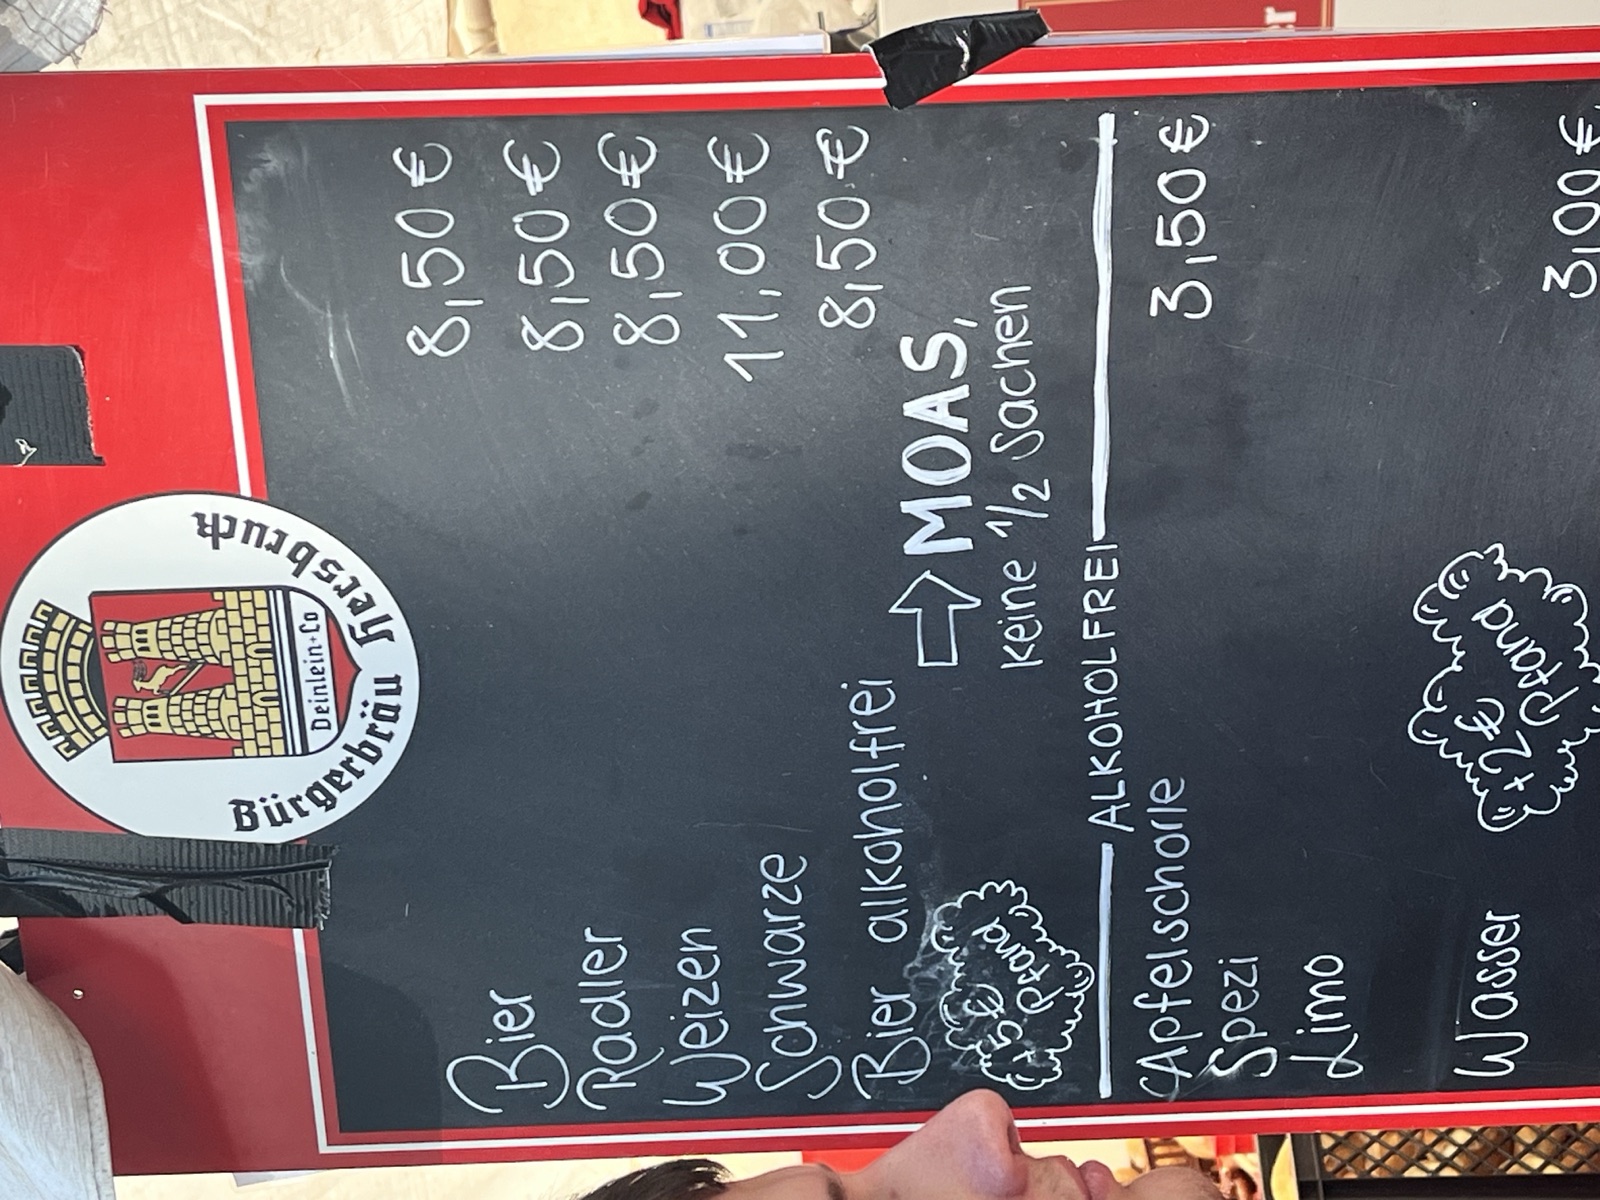 Bürgerbräu Hersbruck
Deinlein+Co
Bier 8,50 €
Radler 8,50 €
Weizen 8,50 €
Schwarze 11,00 €
Bier alkoholfrei 8,50 €
⇒ MOAS,
keine 1/2 Sachen
+5€ Pfand
ALKOHOLFREI
Apfelschorle 3,50 €
Spezi
Limo
+2€ Pfand
Wasser 3,00 €